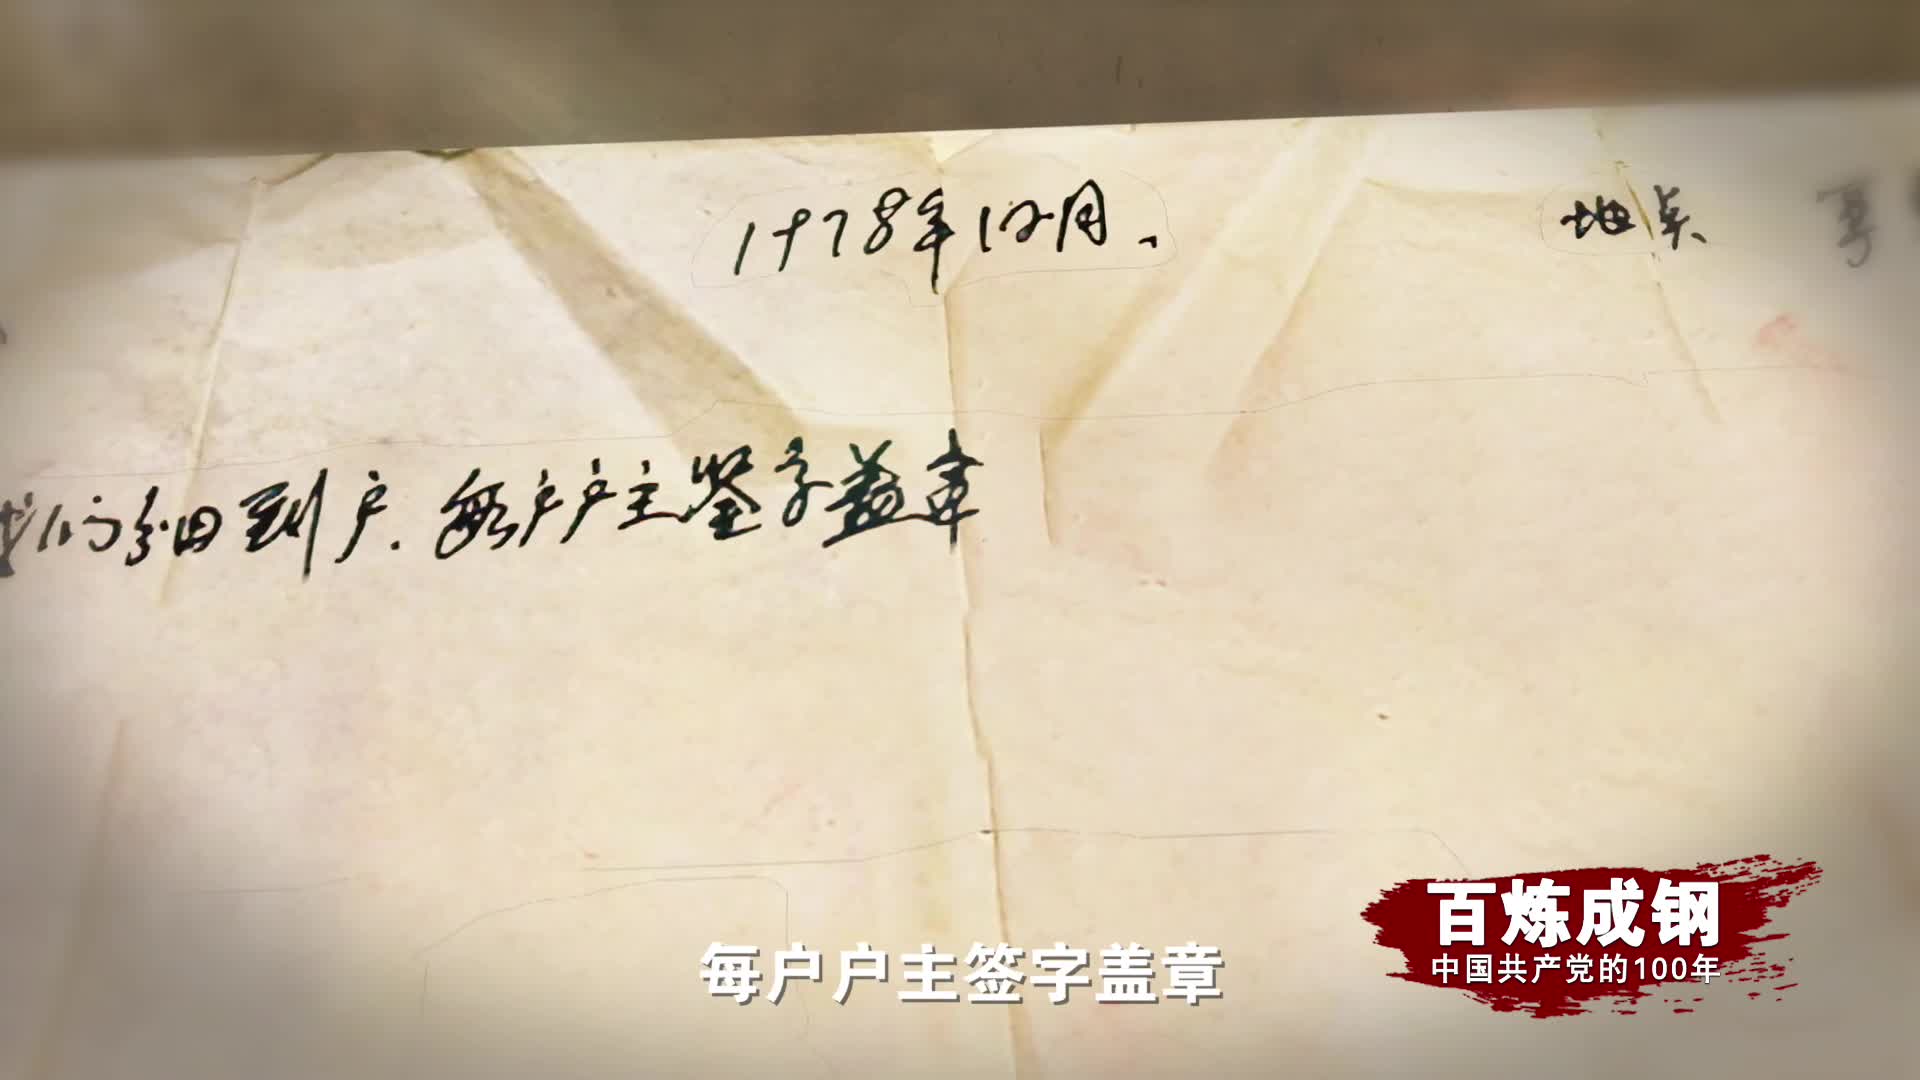 1978年12月. 地点 严
我们分田到户.每户户主签字盖章
每户户主签字盖章
百炼成钢
中国共产党的100年